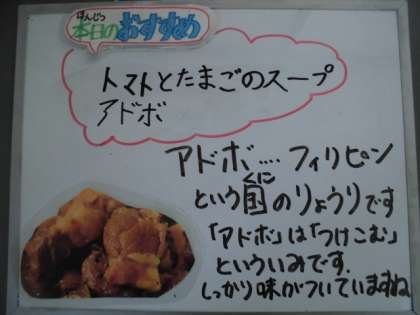 ほんじつ
本日のおすすめ
トマトとたまごのスープ
アドボ
アドボ････フィリピン
くに
という国のりょうりです
「アドボ」は「つけこむ」
といういみです.
しっかり味がついていますね